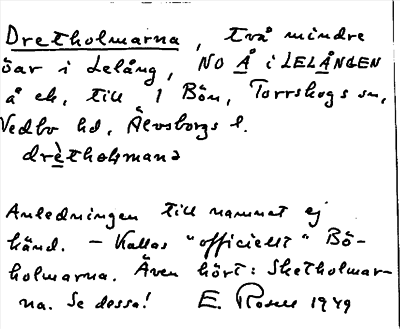 Dretholmarna, två mindre
öar i Lelång, NO Å i LELÅNGEN
å ek, till 1 Bön, Torrskogs sn,
Vedbo hd, Älvsborgs l.
drètholmana
Anledningen till namnet ej
känd. – Kallas "officiellt" Bö-
holmarna. Även hört: Sketholmar-
na. Se dessa! E. Rosell 1949